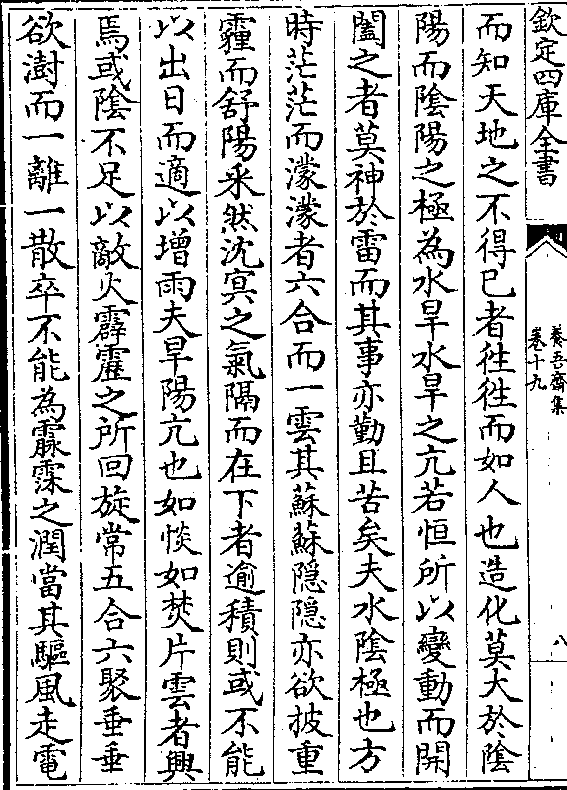 欽定四庫全書
養吾齋集
卷十九
八
而知天地之不得已者徃徃而如人也造化莫大於陰
陽而陰陽之極為水旱水旱之亢若恒所以變動而開
闔之者莫神於雷而其事亦勤且苦矣夫水陰極也方
時茫茫而濛濛者六合而一雲其蘇蘇隠隠亦欲披重
霾而舒陽采然沈冥之氣隔而在下者逾積則或不能
以出日而適以增雨夫旱陽亢也如惔如焚片雲者興
焉或陰不足以敵火霹靂之所回旋常五合六聚垂垂
欲澍而一離一散卒不能為霡霂之潤當其驅風走電